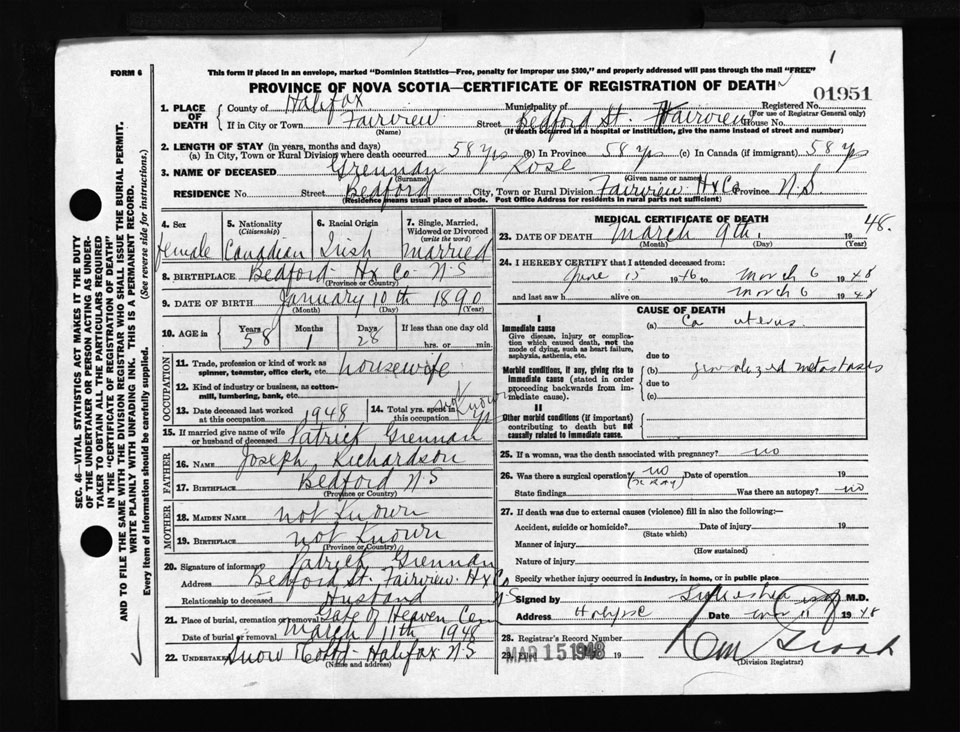 1
FORM 6
This form if placed in an envelope, marked "Dominion Statistics—Free, penalty for improper use $300," and properly addressed will pass through the mail "FREE"
PROVINCE OF NOVA SCOTIA—CERTIFICATE OF REGISTRATION OF DEATH
01951
1. PLACE OF DEATH
County of Halifax Municipality of Registered No.
(For use of Registrar General only)
If in City or Town Fairview Street Bedford St. Fairview House No.
(Name) (If death occurred in a hospital or institution, give the name instead of street and number)
2. LENGTH OF STAY (in years, months and days)
(a) In City, Town or Rural Division where death occurred 58 Yrs (b) In Province 58 Yrs (c) In Canada (if immigrant) 58 Yrs
3. NAME OF DECEASED Grennan Rose
(Surname) (Given name or names)
RESIDENCE No. Street Bedford City, Town or Rural Division Fairview Hx Co Province N.S
(Residence means usual place of abode. Post Office Address for residents in rural parts not sufficient)
4. Sex
female
5. Nationality
(Citizenship)
Canadian
6. Racial Origin
Irish
7. Single, Married, Widowed or Divorced
(write the word)
married
8. BIRTHPLACE Bedford Hx Co N-S
(Province or Country)
9. DATE OF BIRTH January 10th 1890
(Month) (Day) (Year)
10. AGE in
Years 58
Months 1
Days 28
If less than one day old
hrs. or min.
OCCUPATION
11. Trade, profession or kind of work as spinner, teamster, office clerk, etc. housewife
12. Kind of industry or business, as cotton-mill, lumbering, bank, etc.
13. Date deceased last worked at this occupation 1948
14. Total yrs. spent in this occupation not Known
15. If married give name of wife or husband of deceased Patrick Grennan
FATHER
16. NAME Joseph Richardson
17. BIRTHPLACE Bedford N.S
(Province or Country)
MOTHER
18. MAIDEN NAME not Known
19. BIRTHPLACE not Known
(Province or Country)
20. Signature of informant Patrick Grennan
Address Bedford St. Fairview. Hx Co
NS
Relationship to deceased Husband
21. Place of burial, cremation or removal Gate of Heaven Cem
Date of burial or removal March 11th 1948
22. Undertaker Snow & Co Ltd. Halifax N-S
(Name and address)
MEDICAL CERTIFICATE OF DEATH
23. DATE OF DEATH March 9th. 1948.
(Month) (Day) (Year)
24. I HEREBY CERTIFY that I attended deceased from:
June 15 1946 to March 6 1948
and last saw h alive on March 6 1948
CAUSE OF DEATH
I
Immediate cause
Give disease, injury or complication which caused death, not the mode of dying, such as heart failure, asphyxia, asthenia, etc.
(a) Ca uterus
due to
Morbid conditions, if any, giving rise to immediate cause (stated in order proceeding backwards from immediate cause).
(b) generalized metastases
due to
(c)
II
Other morbid conditions (if important) contributing to death but not causally related to immediate cause.
25. If a woman, was the death associated with pregnancy? no
26. Was there a surgical operation? no Date of operation 19
(X RAY)
State findings Was there an autopsy? no
27. If death was due to external causes (violence) fill in also the following:—
Accident, suicide or homicide? Date of injury 19
(State which)
Manner of injury
(How sustained)
Nature of injury
Specify whether injury occurred in industry, in home, or in public place
Signed by M.D.
Address Halifax Date Mar 11 1948
28. Registrar's Record Number
29. Filed MAR 15 1948 19
(Division Registrar)
SEC. 46—VITAL STATISTICS ACT MAKES IT THE DUTY
OF THE UNDERTAKER OR PERSON ACTING AS UNDER-
TAKER TO OBTAIN ALL THE PARTICULARS REQUIRED
IN THE "CERTIFICATE OF REGISTRATION OF DEATH"
AND TO FILE THE SAME WITH THE DIVISION REGISTRAR WHO SHALL ISSUE THE BURIAL PERMIT.
WRITE PLAINLY WITH UNFADING INK. THIS IS A PERMANENT RECORD.
Every item of information should be carefully supplied. (See reverse side for instructions.)